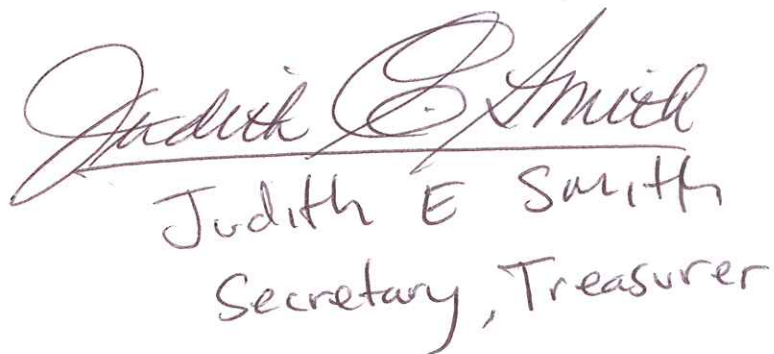 Judith E Smith
Judith E Smith
Secretary, Treasurer